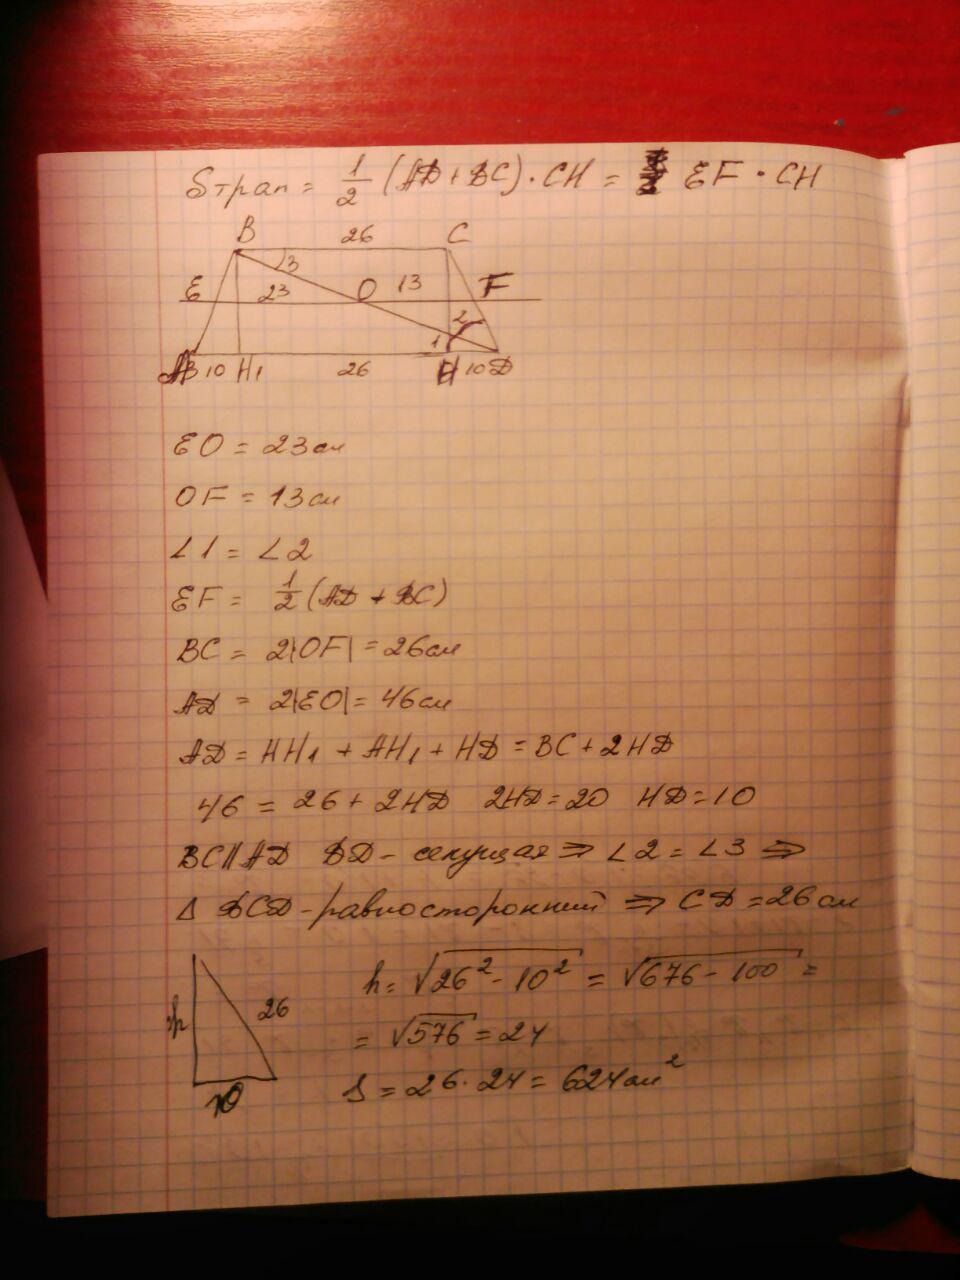 Sтрап = 1/2 (AD + BC) · CH = EF · CH
B 26 C
3
E 23 O 13 F
2
1
A 10 H₁ 26 H 10 D
EO = 23 см
OF = 13 см
∠1 = ∠2
EF = 1/2 (AD + BC)
BC = 2|OF| = 26 см
AD = 2|EO| = 46 см
AD = HH₁ + AH₁ + HD = BC + 2HD
46 = 26 + 2HD 2HD = 20 HD = 10
BC || AD BD - секущая ⇒ ∠2 = ∠3 ⇒
Δ BCD - равносторонний ⇒ CD = 26 см
h = √(26² - 10²) = √(676 - 100) =
h 26
= √576 = 24
10
S = 26 · 24 = 624 см²